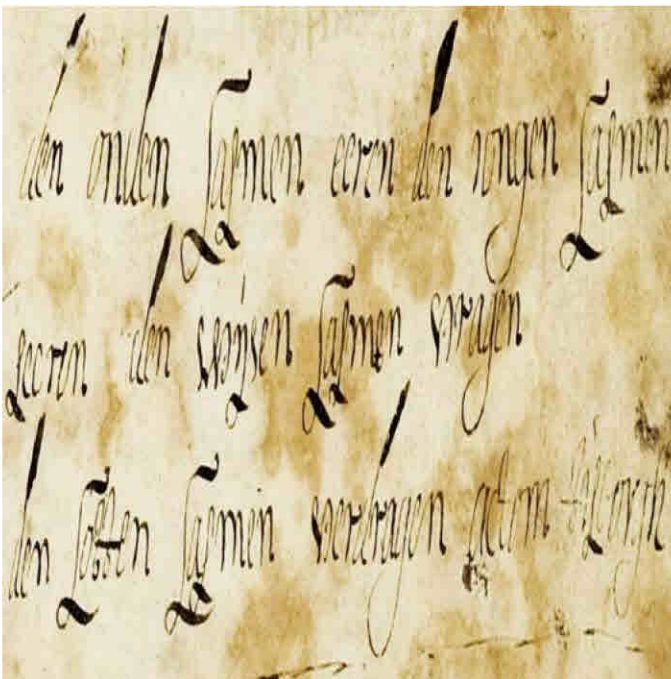 den ouden Salmen eeren den iongen Salmen
Leeren den wijsen Salmen vragen
den Sotten Salmen verdragen actum tilborgh